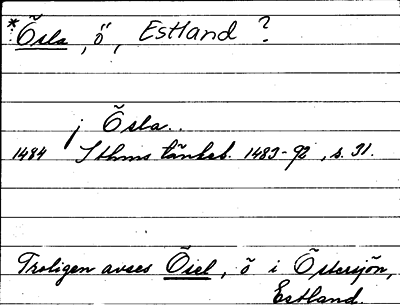 *Ösla, ö, Estland ?
j Ösla..
1484 Sthms tänkeb. 1483-92, s. 31.
Troligen avses Ösel, ö i Östersjön,
Estland.